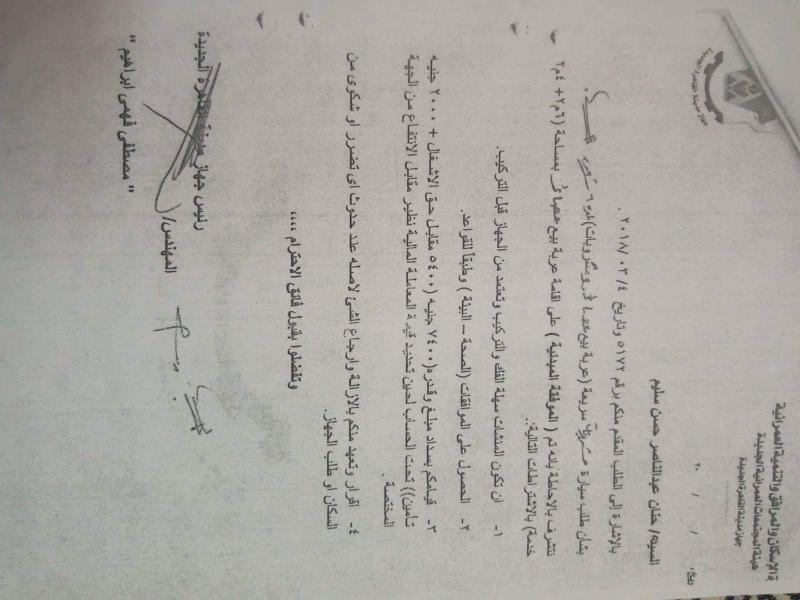 ة الإسكان والمرافق والتنمية العمرانية
هيئة المجتمعات العمرانية الجديدة
جهاز مدينة القاهرة الجديدة
٢٠ / /
السيد/ حنان عبدالناصر حسن سليم
بالاشارة إلى الطلب المقدم منكم برقم ٥١٧٢ وتاريخ ٢٠١٨/٠٣/٤ .
بشان طلب سيارة سريعة (عربة بيع
نتشرف بالاحاطة بانه تم ( الموفقة المبدئية ) على اقامة عربة بيع بمساحة (٦م٢+ ٤م٢
خدمة) بالاشتراطات التالية:.
١- ان تكون المنشات سهلة الفك والتركيب وتعتمد من الجهاز قبل التركيب.
٢- الحصول على الموافقات (الصحة – البيئة ) وطبقاً للقواعد.
٣- قيامكم بسداد مبلغ وقدره(٧٤٠٠ جنيه (٥٤٠٠ مقابل حق الاشغال + ٢٠٠٠ جنيه
تامين)) تحت الحساب لحين تحديد قيمة المعاملة المالية نظير مقابل الانتفاع من الجهة
المختصة .
٤- اقرار وتعهد منكم بالازالة وارجاع الشئ لاصله عند حدوث اى تضرر او شكوى من
السكان او طلب الجهاز.
وتفضلوا بقبول فائق الاحترام ،،،،
رئيس جهاز مدينة القاهرة الجديدة
المهندس/
" مصطفى فهمى ابراهيم "